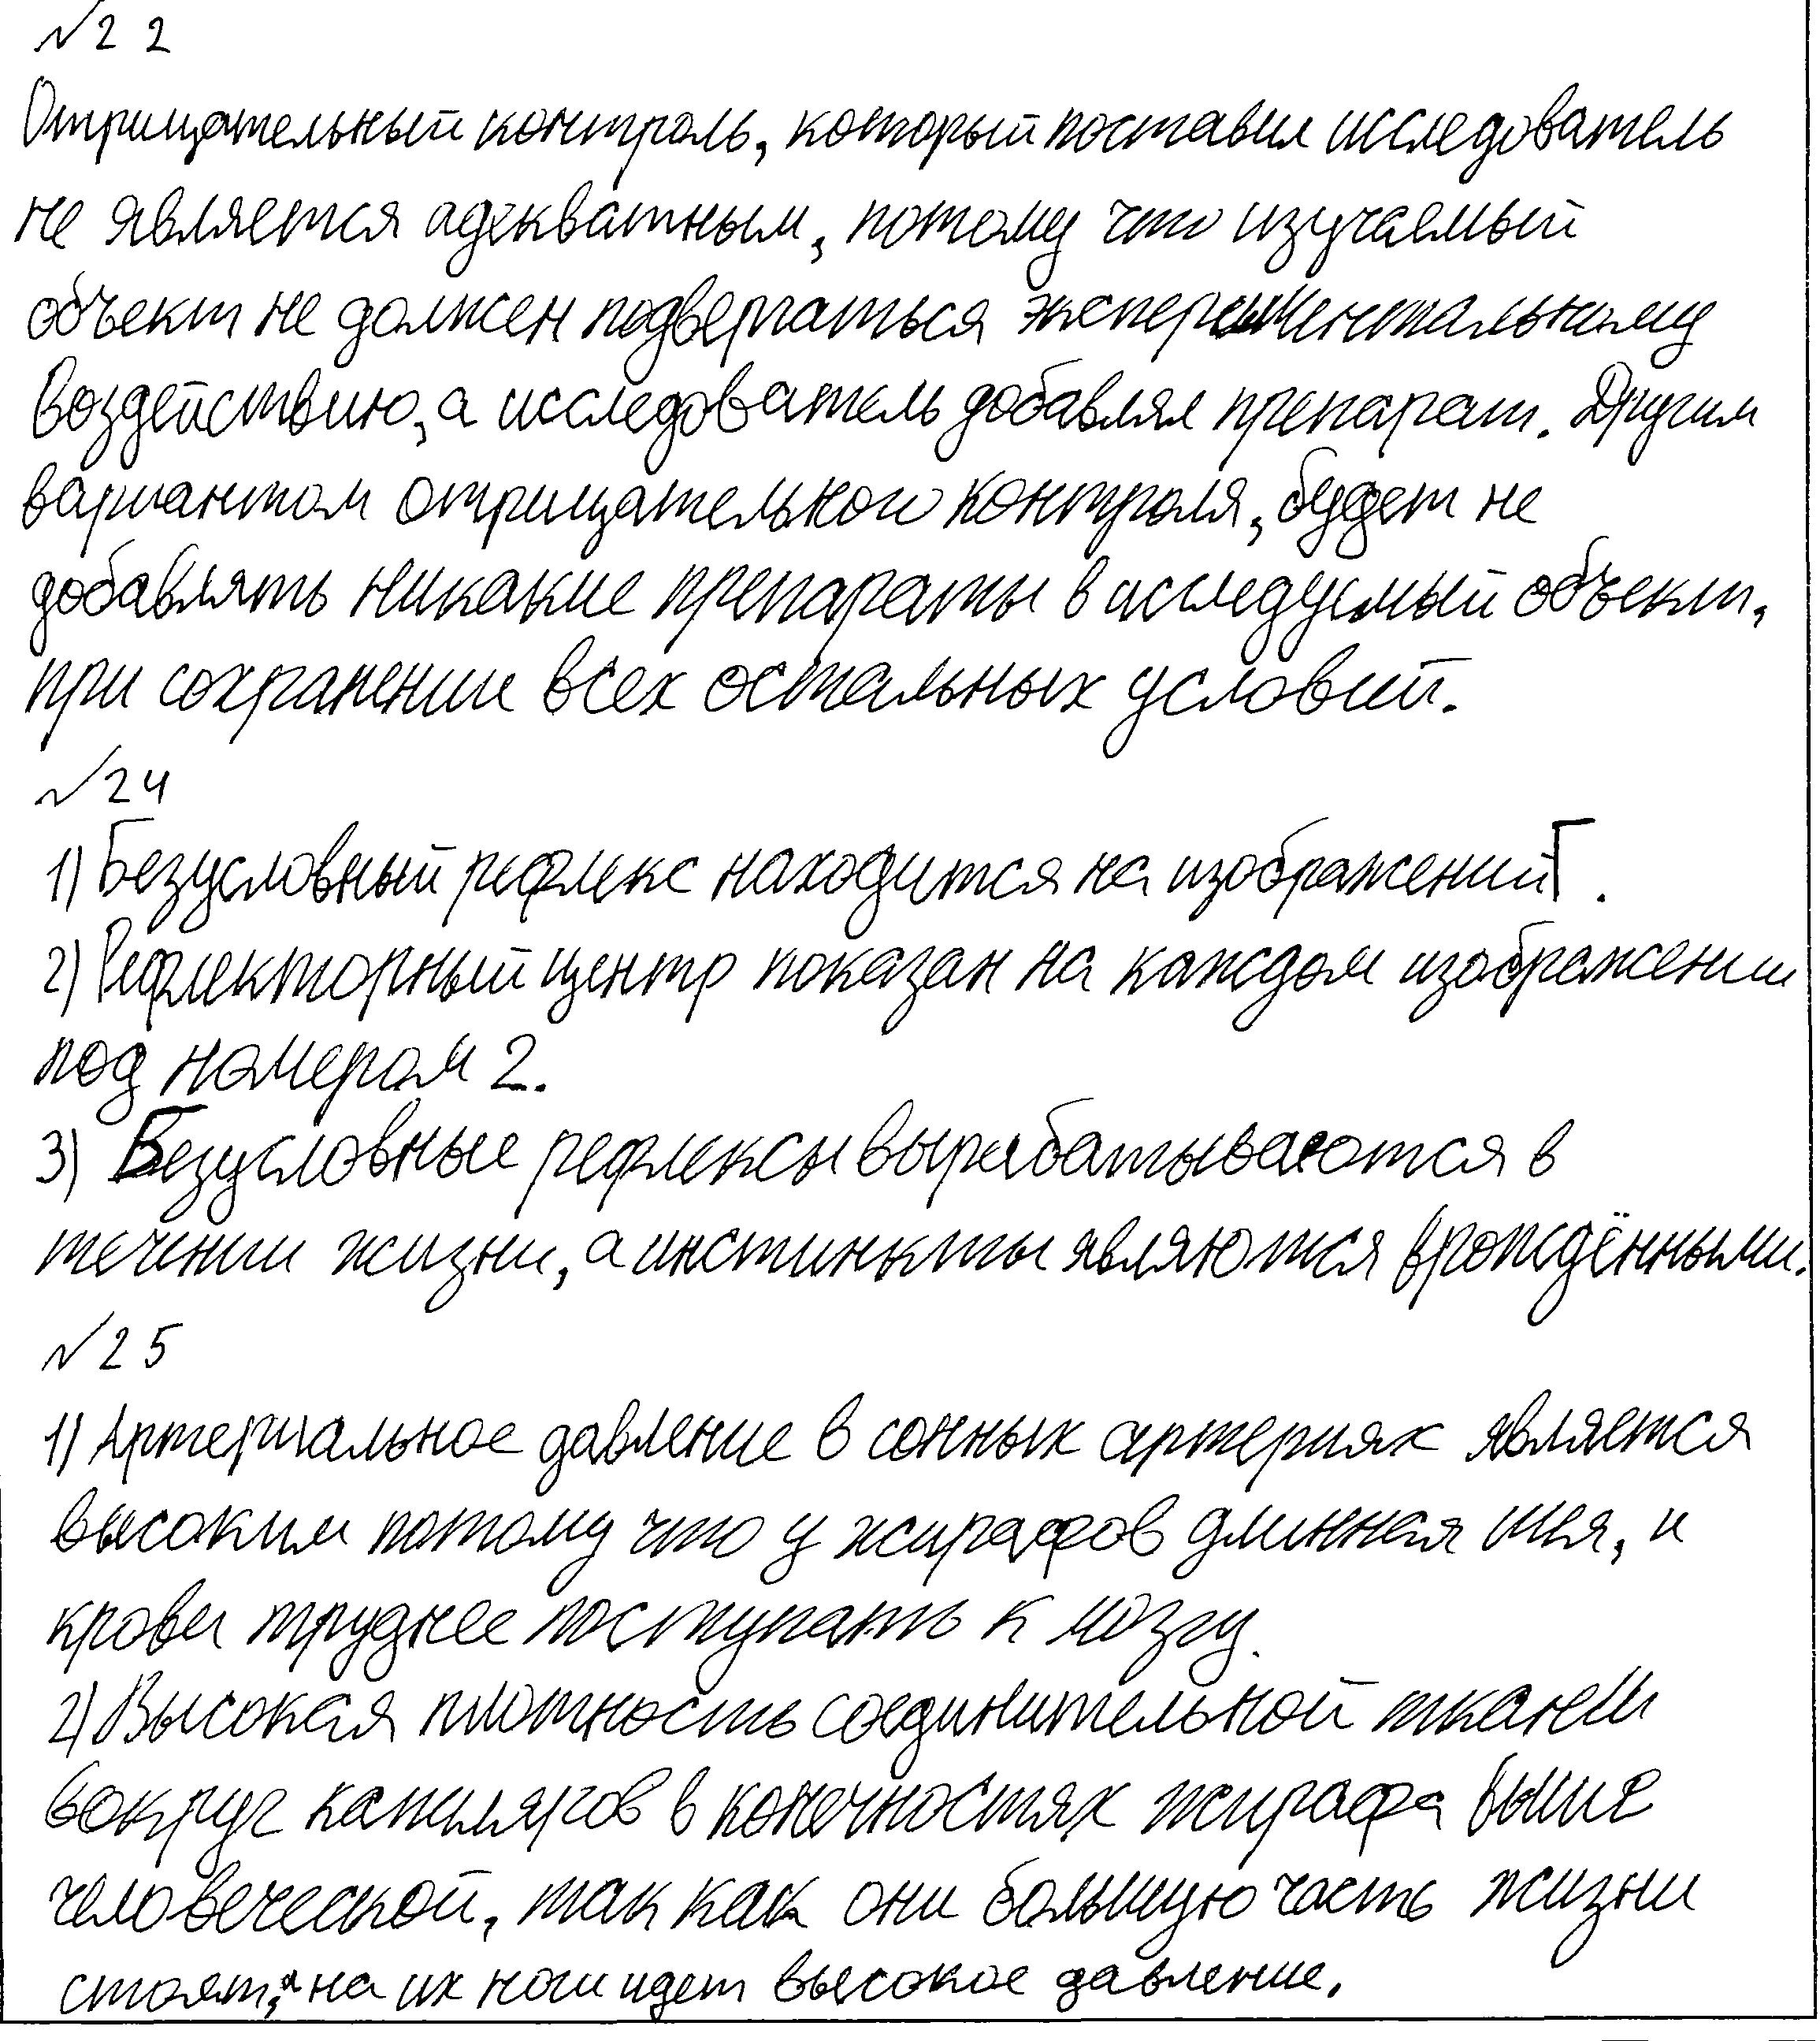 №22
Отрицательный контроль, который поставил исследователь
не является адекватным, потому что изучаемый
объект не должен подвергаться экспериментальному
воздействию, а исследователь добавлял препарат. Другим
вариантом отрицательного контроля, будет не
добавлять никакие препараты в исследуемый объект,
при сохранении всех остальных условий.
№24
1) Безусловный рефлекс находится на изображений Г.
2) Рефлекторный центр показан на каждом изображении
под номером 2.
3) Безусловные рефлексы вырабатываются в
течении жизни, а инстинкты являются врождёнными.
№25
1) Артериальное давление в сонных артериях является
высоким потому что у жирафов длинная шея, и
крови труднее поступать к мозгу.
2) Высокая плотность соединительной ткани
вокруг капиляров в конечностях жирафа выше
человеческой, так как они большую часть жизни
стоят, а на их ноги идет высокое давление.